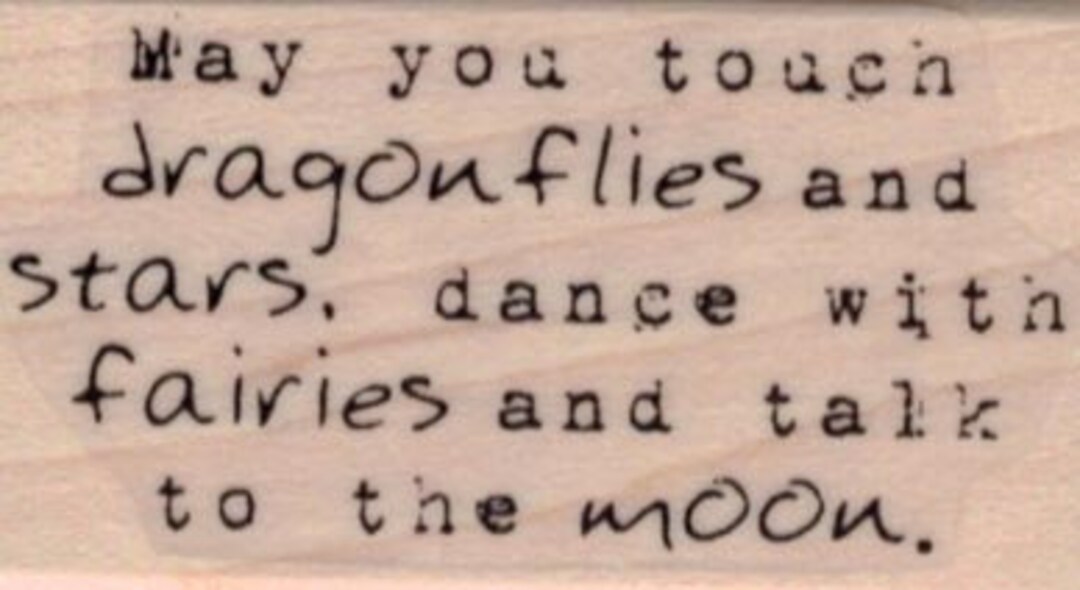 May you touch
dragonflies and
stars. dance with
fairies and talk
to the moon.